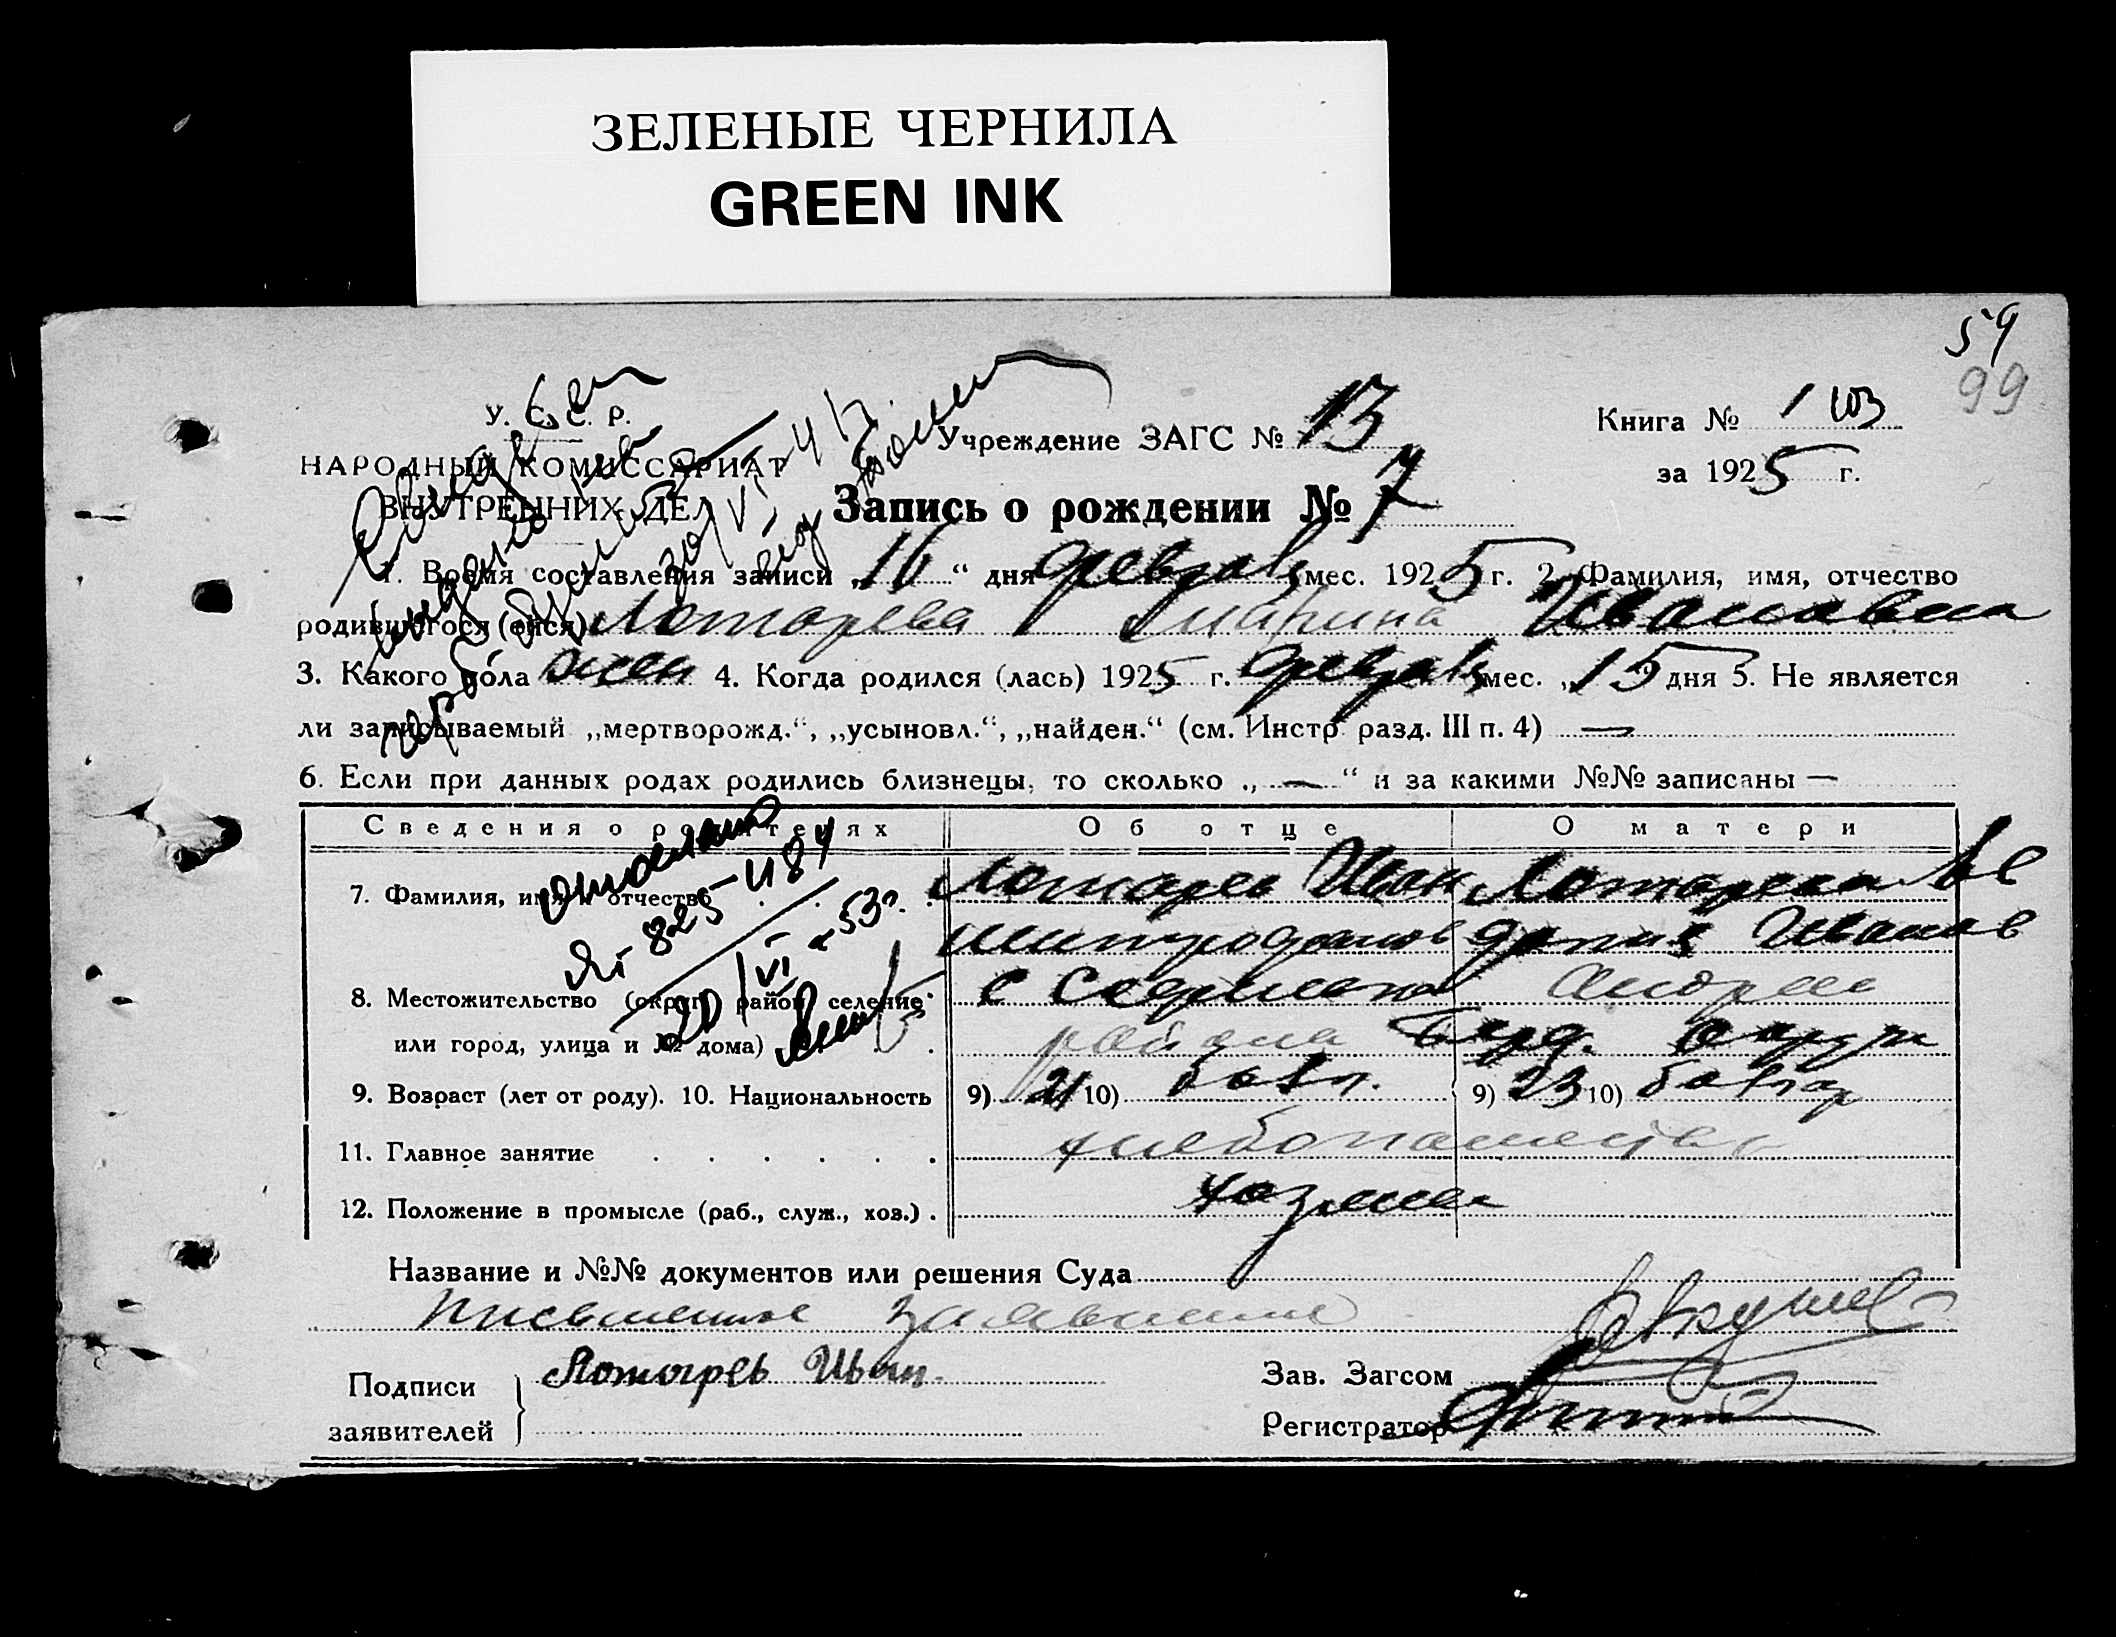 ЗЕЛЕНЫЕ ЧЕРНИЛА
GREEN INK
59
99
У. С. С. Р.
НАРОДНЫЙ КОМИССАРИАТ
ВНУТРЕННИХ ДЕЛ
Учреждение ЗАГС № 13
Книга № 1
за 1925 г.
Запись о рождении № 7
1. Время составления записи „16“ дня феврав мес. 1925 г. 2. Фамилия, имя, отчество
родившегося (ейся) Лотарева Ивановна
3. Какого пола жен 4. Когда родился (лась) 1925 г. феврав мес. „15 дня 5. Не является
ли записываемый „мертворожд.“, „усыновл.“, „найден.“ (см. Инстр. разд. III п. 4) —
6. Если при данных родах родились близнецы, то сколько „—“ и за какими №№ записаны —
Сведения о родителях Об отце О матери
7. Фамилия, имя и отчество Лотарев Иван Лотарева
Митрофанов Иванов
8. Местожительство (округ, район, селение с Андрее
или город, улица и № дома) района Берд. округи
9. Возраст (лет от роду). 10. Национальность 9) 21 10) болг. 9) 23 10) болгар
11. Главное занятие хлебопашество
12. Положение в промысле (раб., служ., хоз.) хозяин
Выслано
№ 825-4184
20/VI-53г.
Название и №№ документов или решения Суда
письменное заявление
Подписи заявителей Лотарев Иван.
Зав. Загсом
Регистратор